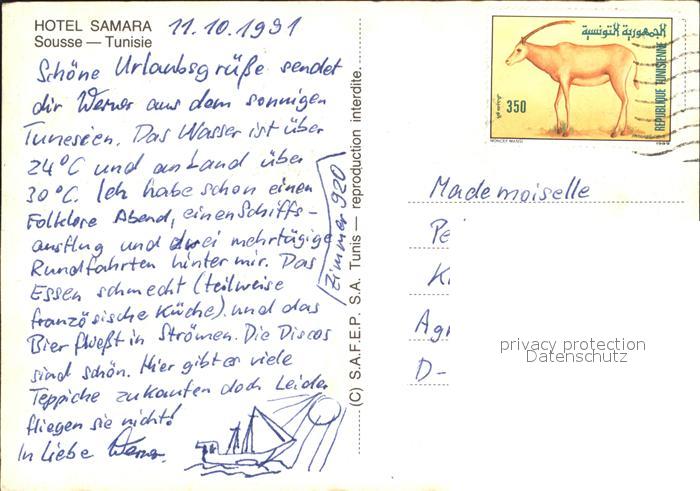 HOTEL SAMARA 11.10.1991
Sousse — Tunisie
Schöne Urlaubsgrüße sendet
dir Werner aus dem sonnigen
Tunesien. Das Wasser ist über
24°C und an Land über
30°C. Ich habe schon einen
Folklore Abend, einen Schiffs-
ausflug und drei mehrtägige
Rundfahrten hinter mir. Das
Essen schmeckt (teilweise
französische Küche) und das
Bier fließt in Strömen. Die Discos
sind schön. Hier gibt es viele
Teppiche zu kaufen doch Leider
fliegen sie nicht!
In Liebe Werner
Zimmer 920
(C) S.A.F.E.P. S.A. Tunis — reproduction interdite
الجمهورية التونسية
REPUBLIQUE TUNISIENNE
350
MONCEF MANSI
Mademoiselle
Pe
K
Agr
D-
privacy protection
Datenschutz